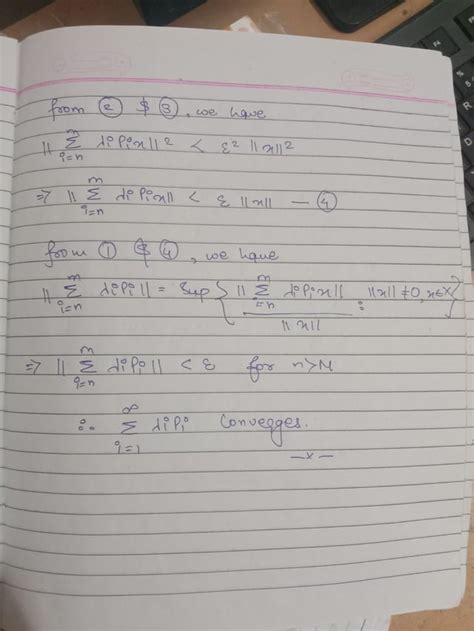 from ② & ③, we have
|| m Σ i=n λiPix ||² < ε² ||x||²
⇒ || m Σ i=n λiPix || < ε ||x|| — ④
from ① & ④, we have
|| m Σ i=n λiPi || = Sup { || m Σ i=n λiPix || / ||x|| : ||x|| ≠ 0, x∈X }
⇒ || m Σ i=n λiPi || < ε for n>N
∴ ∞ Σ i=1 λiPi Converges.
—x—